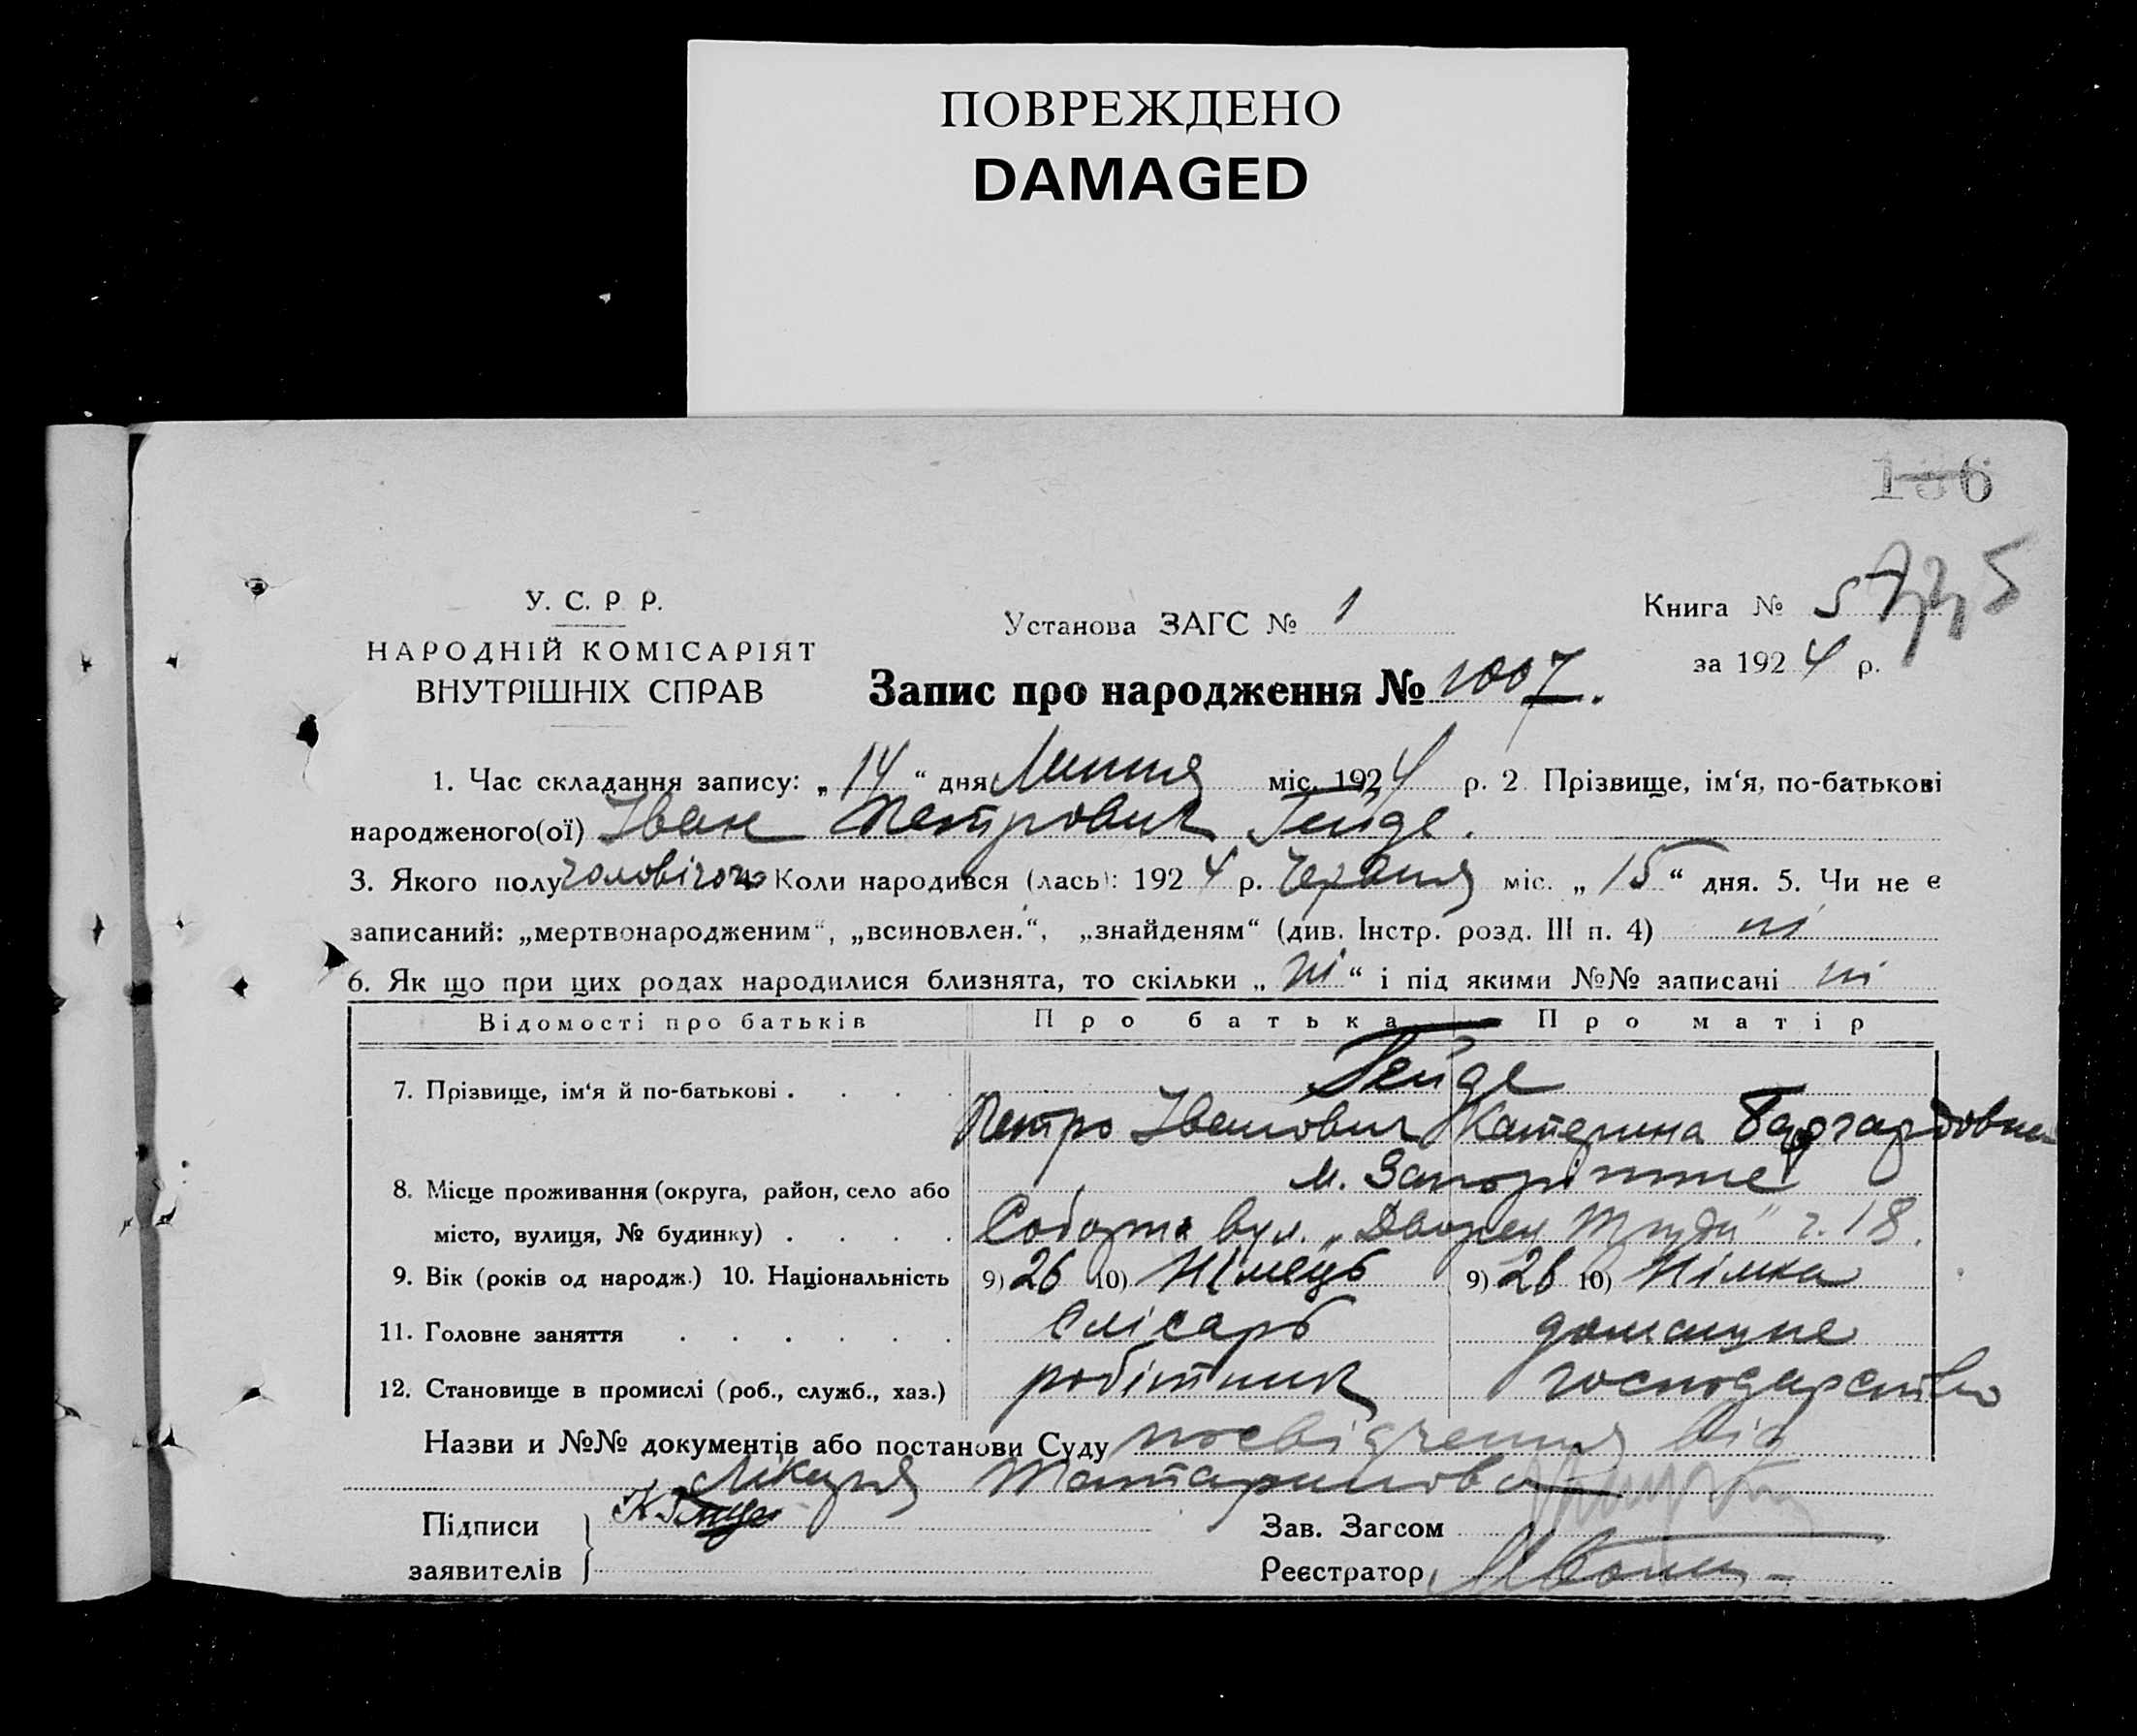 ПОВРЕЖДЕНО
DAMAGED
У. С. Р Р.
НАРОДНІЙ КОМІСАРІЯТ
ВНУТРІШНІХ СПРАВ
Установа ЗАГС № 1
Книга № 5
за 1924 р.
Запис про народження № 1007.
1. Час складання запису: „14“ дня Липня міс. 1924 р. 2. Прізвище, ім‘я, по-батькові
народженого(ої) Іван Петрович Гейде.
3. Якого полу чоловічого Коли народився (лась): 1924 р. Червня міс. „15“ дня. 5. Чи не є
записаний: „мертвонародженим“, „всиновлен.“, „знайденям“ (див. Інстр. розд. III п. 4) ні
6. Як що при цих родах народилися близнята, то скільки „ні“ і під якими №№ записані ні
Відомості про батьків Про батька Про матір
7. Прізвище, ім‘я й по-батькові . . . . Гейде
Петро Іванович Катерина
8. Місце проживання (округа, район, село або м.
місто, вулиця, № будинку) . . . . Соборна вул. „Дворец Труда“ 18.
9. Вік (років од народж.) 10. Національність 9) 26 10) Німець 9) 26 10) Німка
11. Головне заняття . . . . . . Слісарь домашнє
12. Становище в промислі (роб., служб., хаз.) робітник господарство
Назви и №№ документів або постанови Суду посвідчення від
Лікаря
Підписи
заявителів
Зав. Загсом
Реєстратор